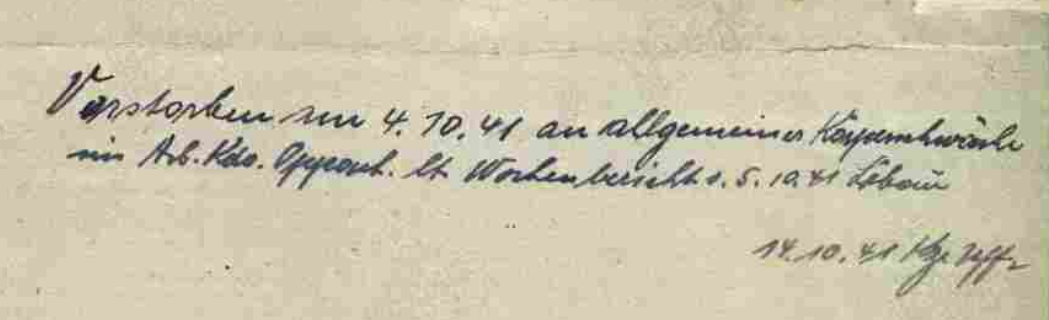 Verstorben am 4.10.41 an allgemeiner Körperschwäche
im Arb. Kdo. Oppach. lt. Wochenbericht v. 5.10.41 Löbau
14.10.41